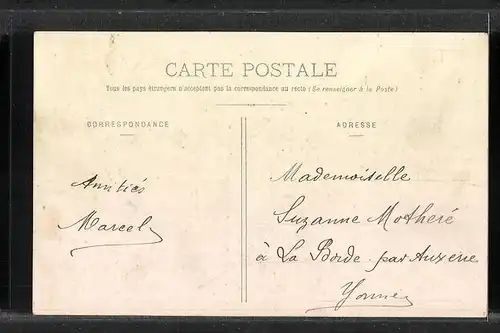 CARTE POSTALE
Tous les pays étrangers n'acceptent pas la correspondance au recto (Se renseigner à la Poste)
CORRESPONDANCE
Amitiés
Marcel
ADRESSE
Mademoiselle
Suzanne Motheré
à La Borde par Auxerre
Yonne